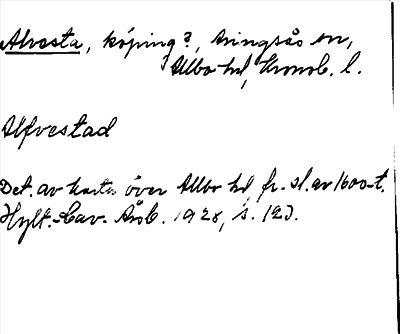 Alvesta, köping?, Aringsås sn,
Allbo hd, Kronob. l.
Alfvestad
Det. av karta över Allbo hd, fr. sl. av 1600-t.
Hylt.-Cav. Årsb. 1928, s. 123.